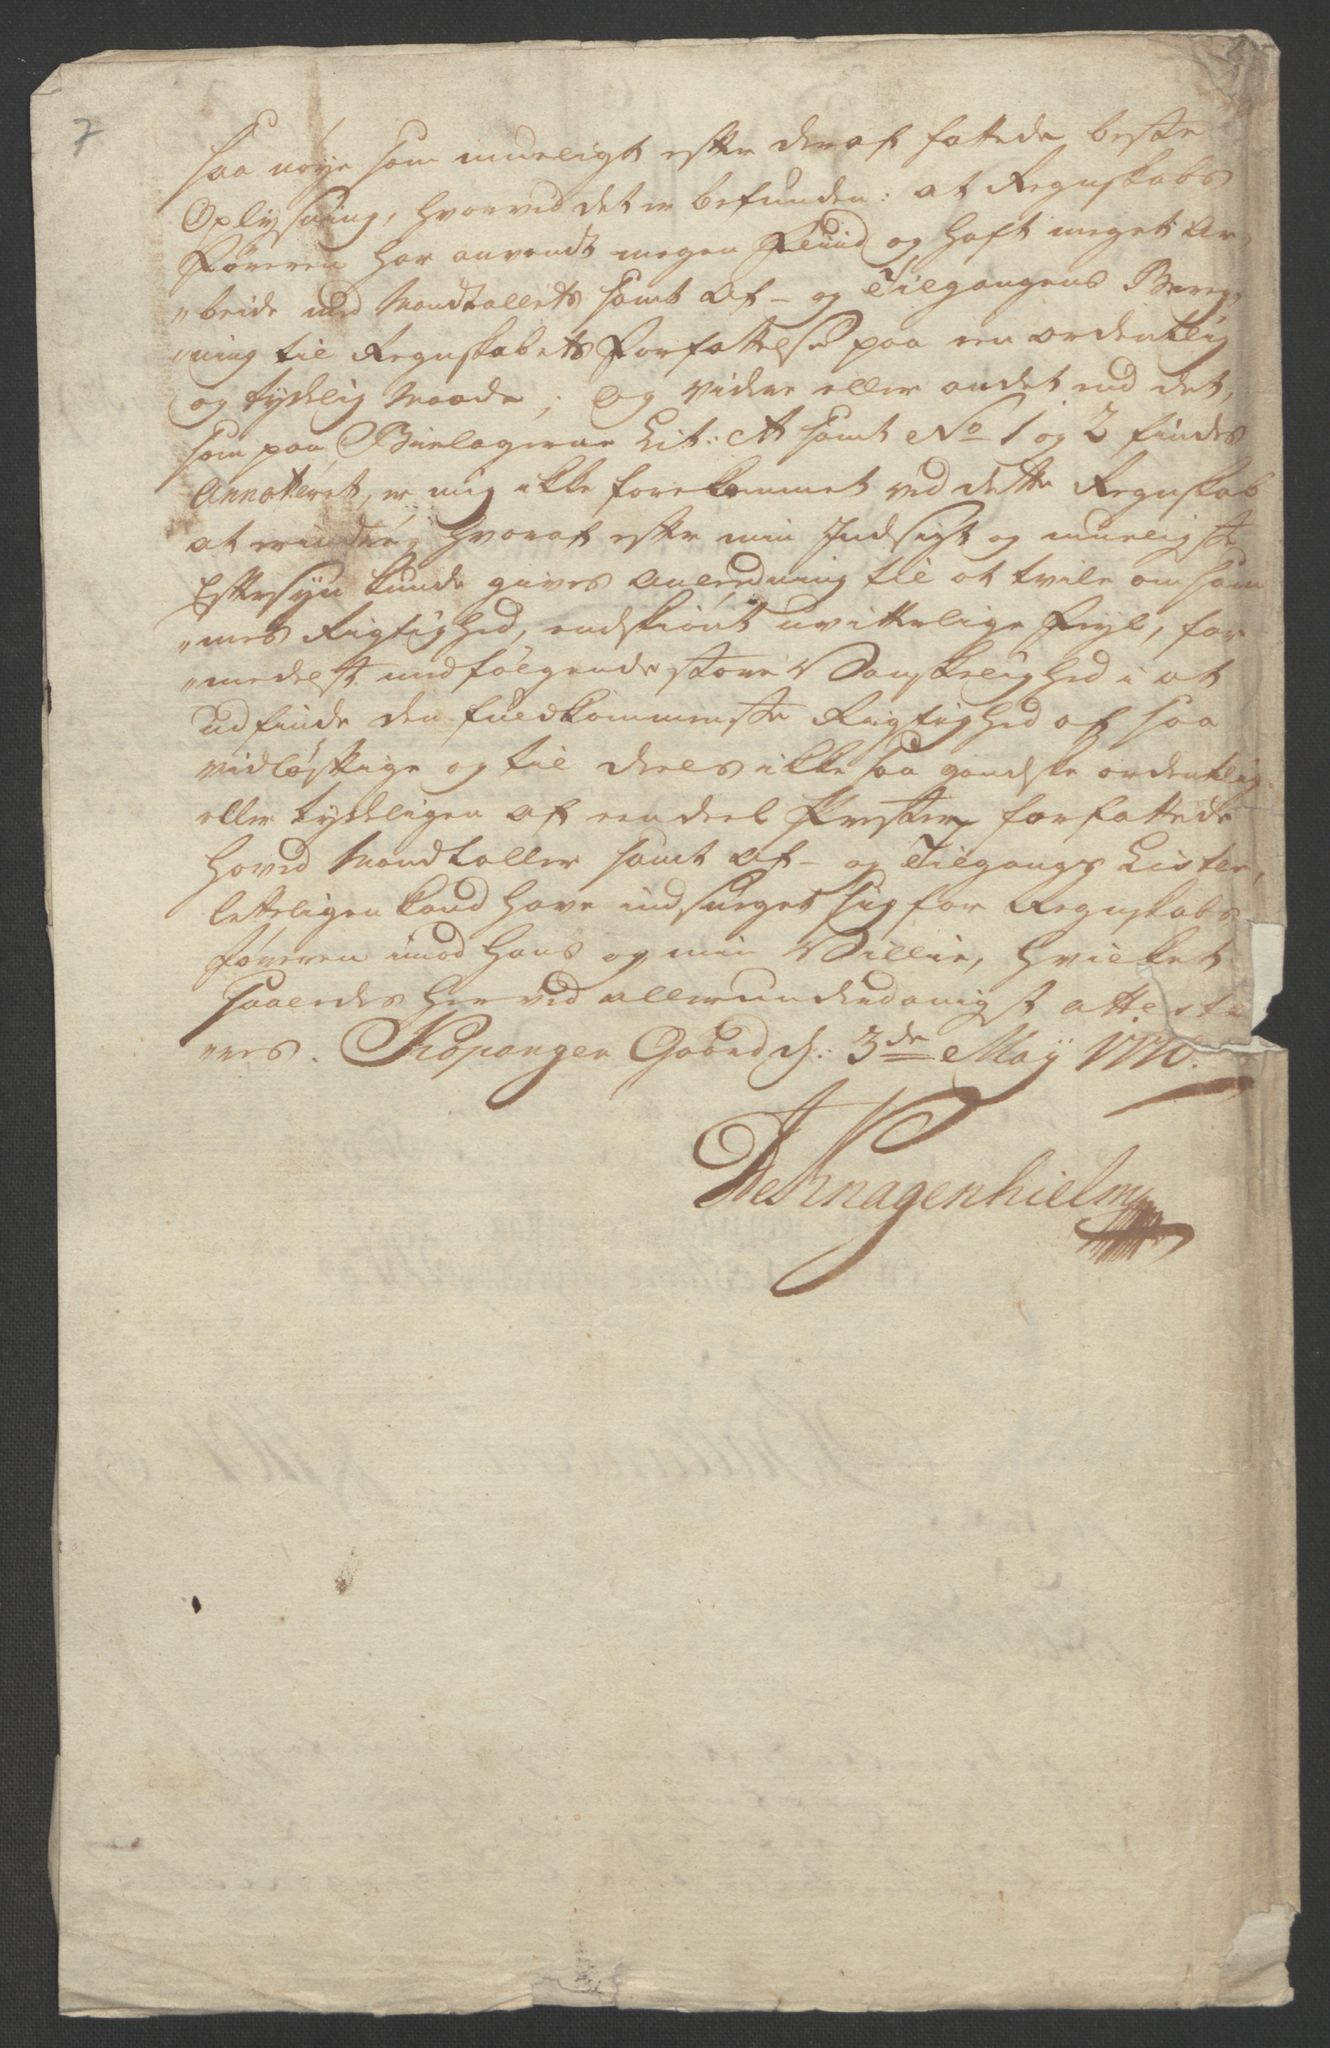 7
saa nöye som mueligt efter deraf fattede beste
Oplysning, hvorved det er befunden: at Regnskabs
Föreren har anvendt megen Fliid og haft meget Ar„
„beide med Mandtallets samt Af- og Tilgangens Bereg„
„ning til Regnskabets Forfattelse paa een ordentlig
og tydelig Maade; og videre eller andet end det,
som paa Bielagerne Lit: A samt No 1 og 2 findes
Annotteret, er mig ikke forekommet ved dette Regnskab
at erindre, hvoraf efter min Indsigt og mueligste
Eftersyn kunde gives anleedning til at tvile om sam
„mes Rigtighed, endskiönt uvitterlige Feyl, for
„medelst medfölgende store Vanskelighed i at
udfinde den fuldkommenste Rigtighed af saa
vidlöftige og til deels ikke saa gandske ordentlig
eller tydeligen af een deel Prester forfattede
Hoved Mandtaller samt Af- og Tilgangs Lister,
letteligen kand have indsneget sig for Regnskabs
föreren imod hans og min Villie, hvilket
saaledes herved allerunderdanigst atteste
„res. Kopanger Gaard d: 3de May 1770.
De Knagenhielm